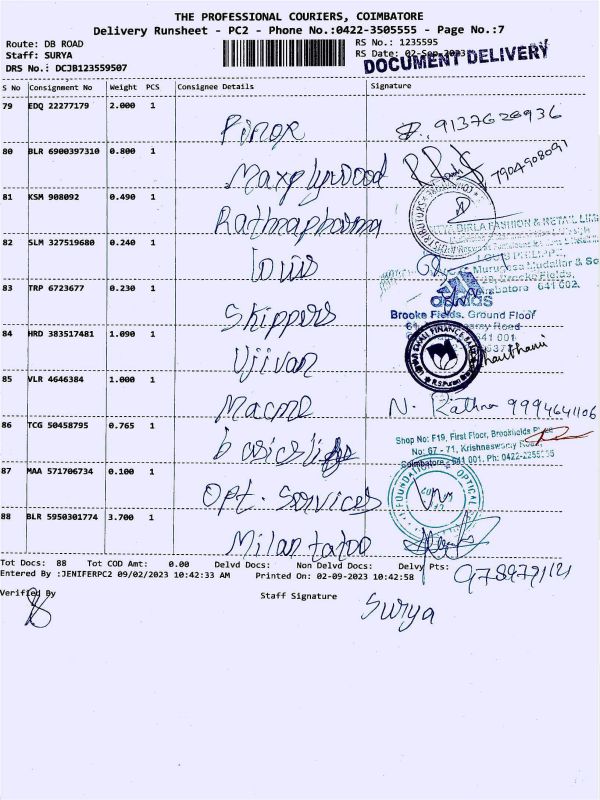 THE PROFESSIONAL COURIERS, COIMBATORE
Delivery Runsheet - PC2 - Phone No.:0422-3505555 - Page No.:7
Route: DB ROAD
Staff: SURYA
DRS No.: DCJB123559507
RS No.: 1235595
RS Date: 02-Sep-2023
DOCUMENT DELIVERY
S No Consignment No Weight PCS Consignee Details Signature
79 EDQ 22277179 2.000 1
9137626936
80 BLR 6900397310 0.800 1
Maxplywood 7904908091
81 KSM 908092 0.490 1
Rathnapharma
82 SLM 327519680 0.240 1
louis
BIRLA FASHION & RETAIL LIM
LOUIS PHILIPP
Murugesa Mudaliar & So
Brooke Fields,
641 002.
83 TRP 6723677 0.230 1
Skippers
adidas
Brooke Fields, Ground Floor
84 HRD 383517481 1.090 1
Ujivan
SMALL FINANCE BANK
85 VLR 4646384 1.000 1
Macme N. Rathna 9994641106
86 TCG 50458795 0.765 1
basics life
Shop No: F19, First Floor, Brookfields
No: 67 - 71, Krishnaswamy Road,
Coimbatore - 641 001. Ph: 0422-2255
87 MAA 571706734 0.100 1
Opt. Services
FOUNDATION OPTICAL
88 BLR 5950301774 3.700 1
Milan tatoo
Tot Docs: 88 Tot COD Amt: 0.00 Delvd Docs: Non Delvd Docs: Delvy Pts:
9789791121
Entered By :JENIFERPC2 09/02/2023 10:42:33 AM Printed On: 02-09-2023 10:42:58
Verified By Staff Signature Surya